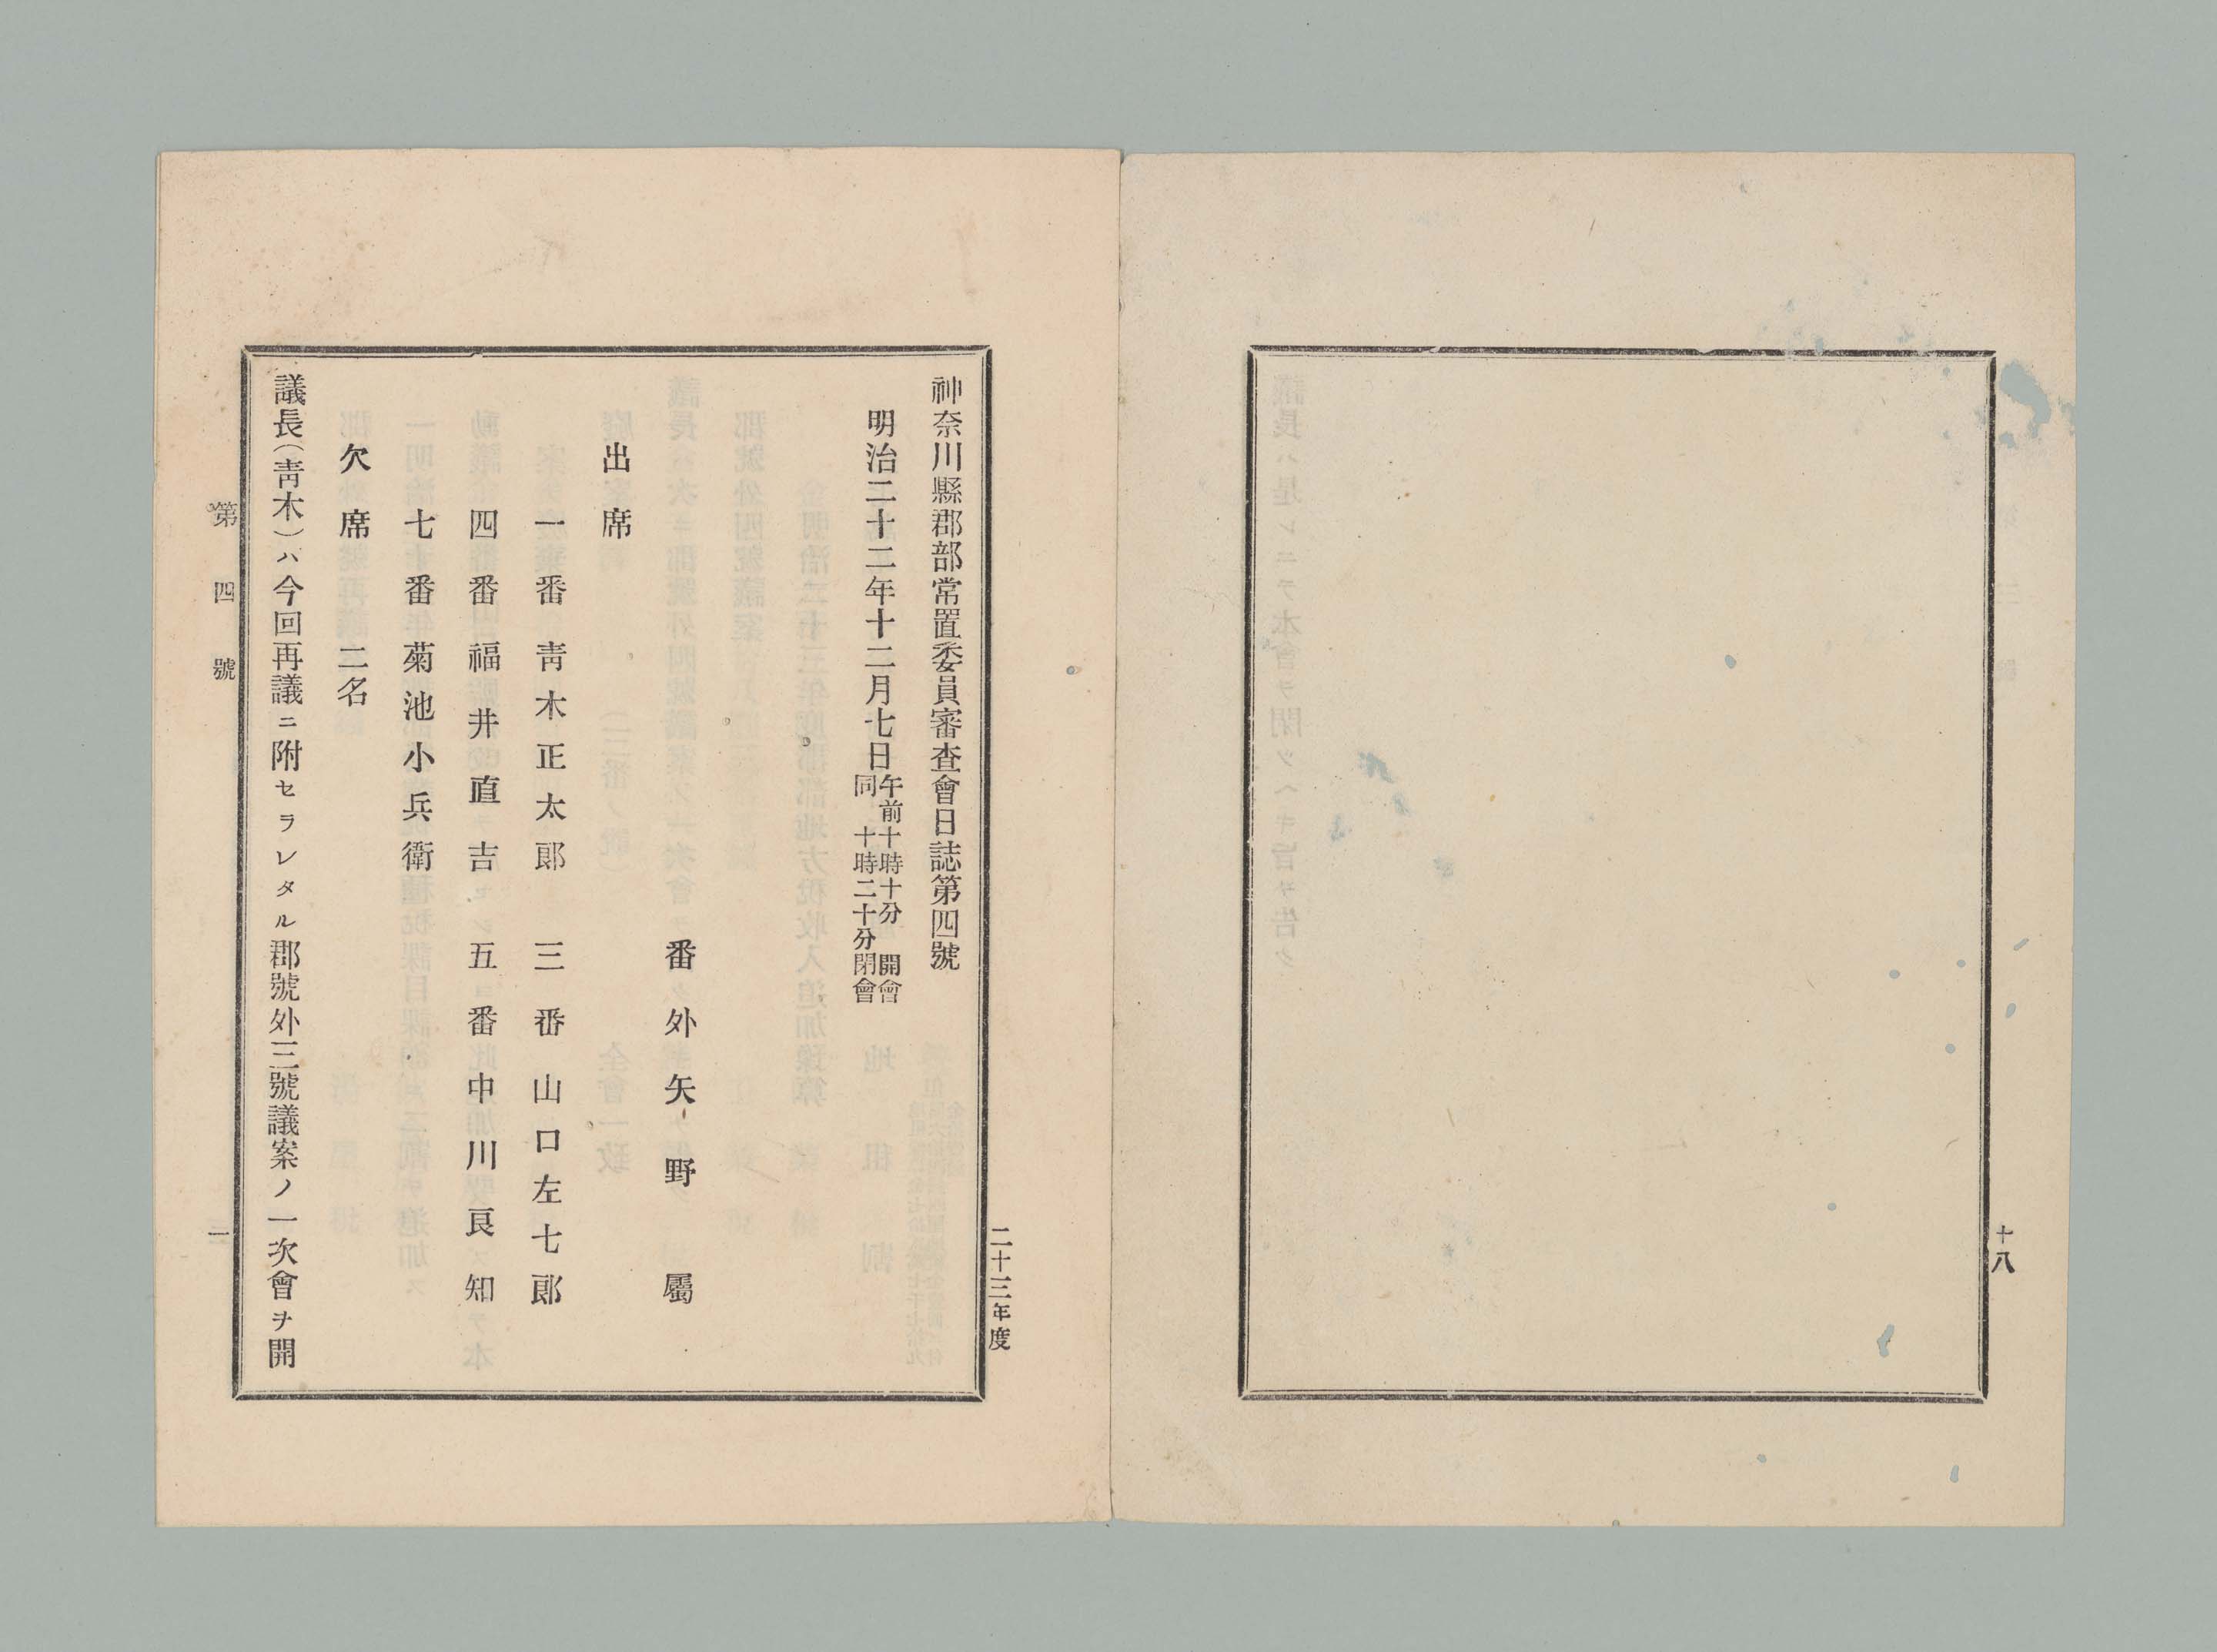 十八
二十三年度
神奈川縣郡部常置委員審査會日誌第四號
明治二十二年十二月七日午前十時十分開會
同十時二十分閉會
番外矢野屬
出席
一番青木正太郎 三番山口左七郎
四番福井直吉 五番中川良知
七番菊池小兵衛
欠席二名
議長（青木）ハ今回再議ニ附セラレタル郡號外三號議案ノ一次會ヲ開
第四號
一